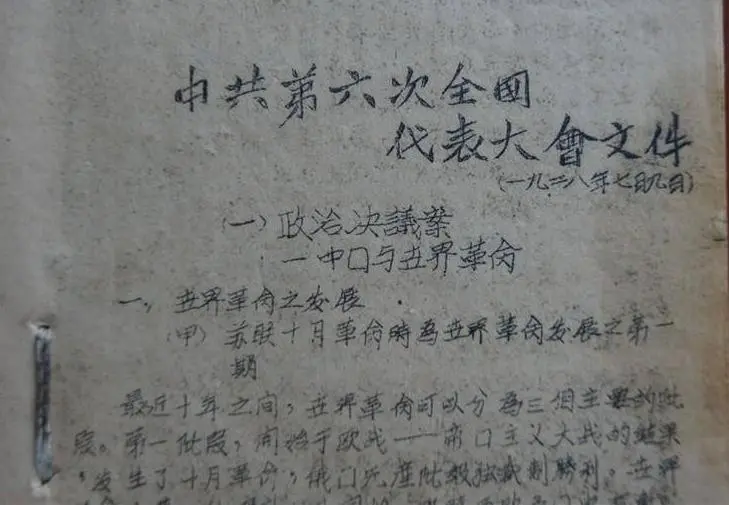 中共第六次全國
代表大會文件
(一九二八年七月九日)
(一)政治决議案
一 中囗与世界革命
一，世界革命之发展
(甲) 苏联十月革命時為世界革命发展之第一
期
最近十年之间，世界革命可以分為三個主要的阶
段。第一阶段，開始于欧战——帝囗主义大战的結果
，发生了十月革命，俄门无産阶級独裁制勝利。